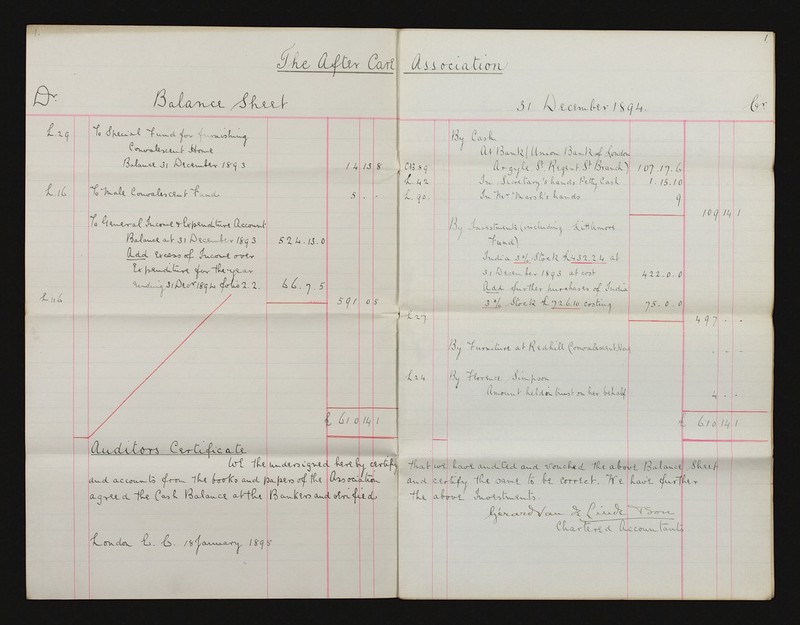 1.
1
The After Care Association
Dr
Balance Sheet
31 December 1894.
Cr
L.29 To Special Fund for furnishing
Convalescent Home
Balance 31 December 1893 14 13 8
L.16 To Male Convalescent Fund 5 . -
To General Income & Expenditure Account
Balance at 31 December 1893 524.13.0
Add excess of Income over
Expenditure for the year
ending 31 Decr 1894 folio 2.2. 66.7.5
L.116 591 0 5
£ 610 14 1
By Cash
At Bank (Union Bank of London
CB 89 Argyle St. Regent St Branch) 107.17.6
L.42 In Secretary's hands Petty Cash 1.15.10
L.90. In Mrs Marsh's hands 9
109 14 1
By Investments (including
Fund)
India 3% Stock at
31 December 1893 at cost 422.0.0
Add further purchases of India
3% Stock £72.6.10 costing 75.0.0
L.27 497 - -
By Furniture at Redhill Convalescent Home - - -
L.24 By Florence Simpson
Amount held on trust on her behalf 4 - -
£ 610 14 1
Auditors Certificate
We the undersigned hereby certify that we have audited and vouched the above Balance Sheet
and accounts from the books and papers of the Association and certify the same to be correct. We have further
agreed the Cash Balance at the Bankers and verified the above Investments.
Gerard Van de Linde & Son
Chartered Accountants
London E. C. 18 January 1895